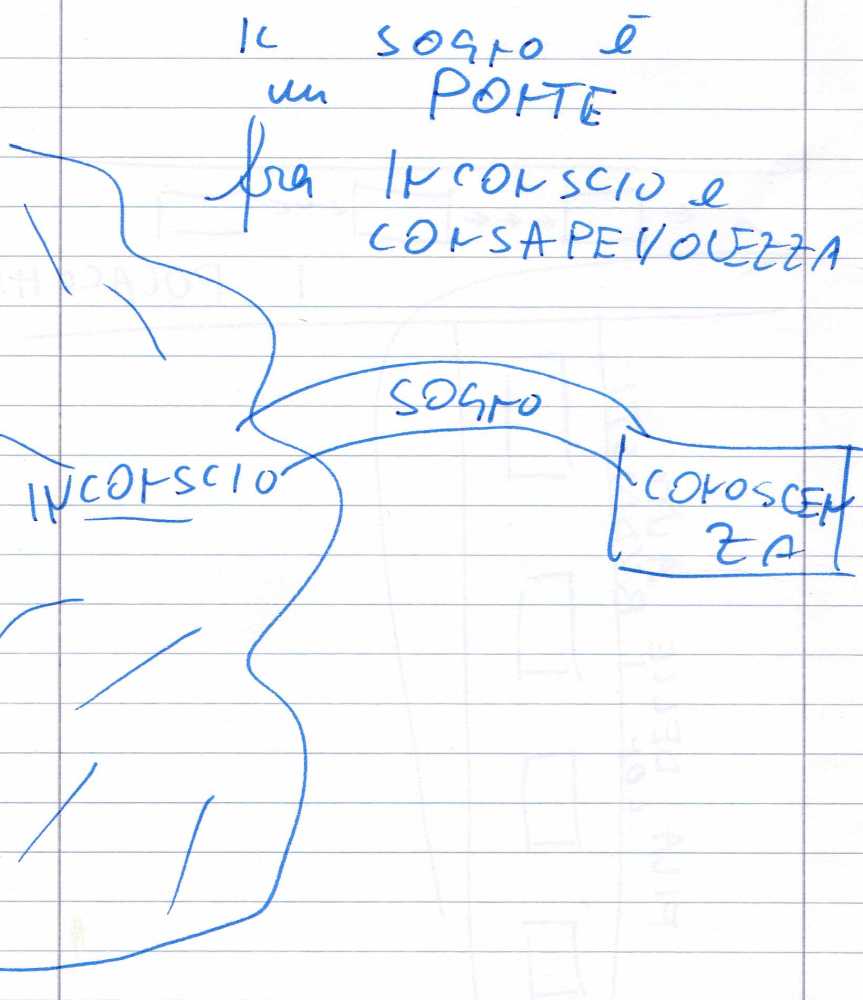 IL SOGNO È
un PONTE
fra INCONSCIO e
CONSAPEVOLEZZA
SOGNO
INCONSCIO
CONOSCEN
ZA